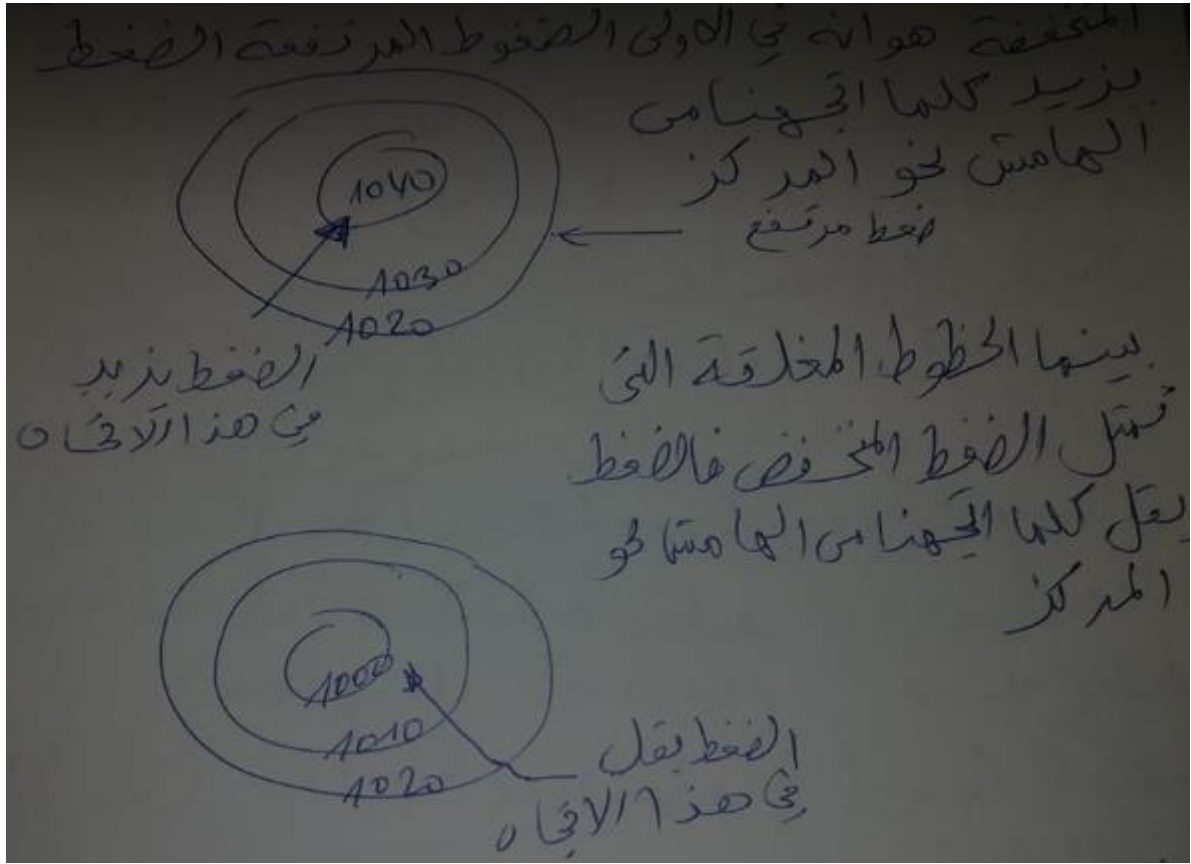 المنخفضة هو انه في الاولى الضغوط المرتفعة الضغط
يزيد كلما اتجهنا من
الهامش نحو المركز
ضغط مرتفع
1040
1030
1020
الضغط يزيد
في هذا الاتجاه
بينما الخطوط المغلقة التي
تمثل الضغط المنخفض فالضغط
يقل كلما اتجهنا من الهامش نحو
المركز
1000
1010
1020
الضغط يقل
في هذا الاتجاه